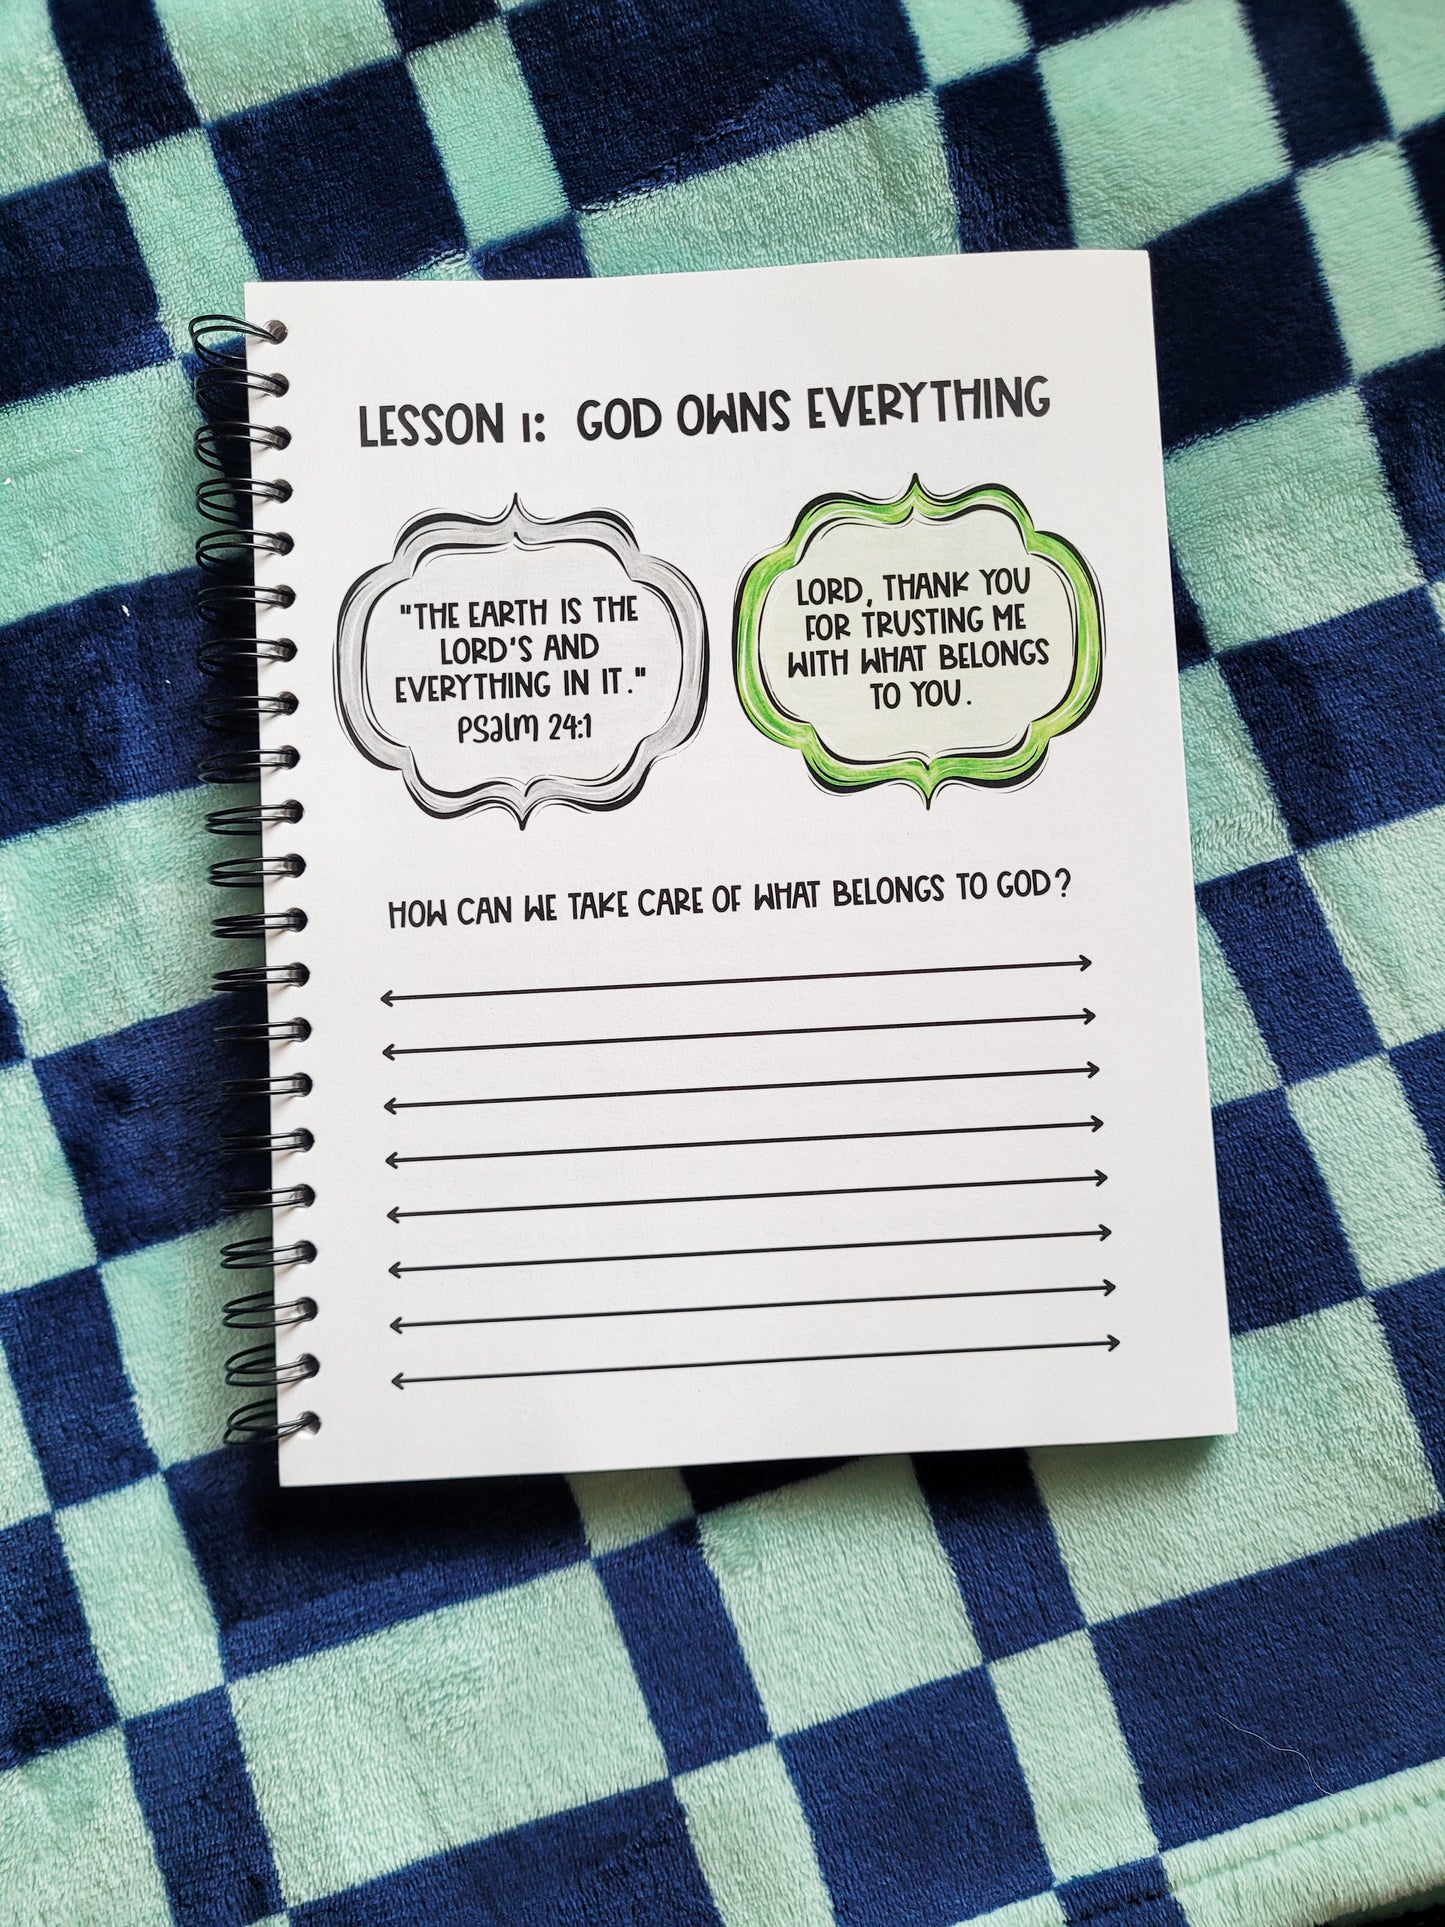 LESSON 1: GOD OWNS EVERYTHING
"THE EARTH IS THE
LORD'S AND
EVERYTHING IN IT."
PSalm 24:1
LORD, THANK YOU
FOR TRUSTING ME
WITH WHAT BELONGS
TO YOU.
HOW CAN WE TAKE CARE OF WHAT BELONGS TO GOD?